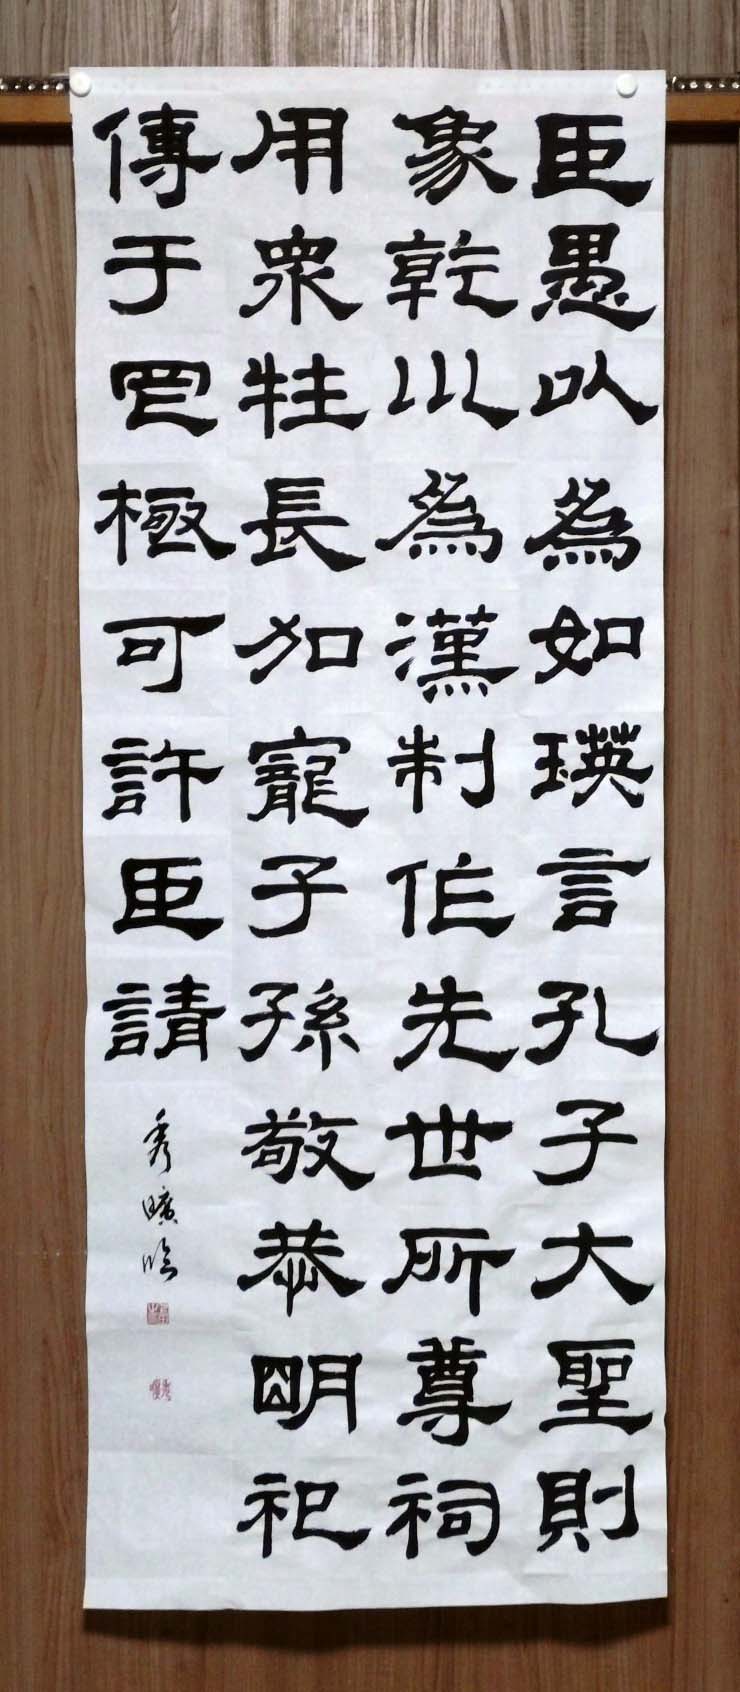 臣愚以為如瑛言孔子大聖則
象乾川為漢制作先世所尊祠
用眾牲長加寵子孫敬恭明祀
傳于罔極可許臣請
秀曠臨